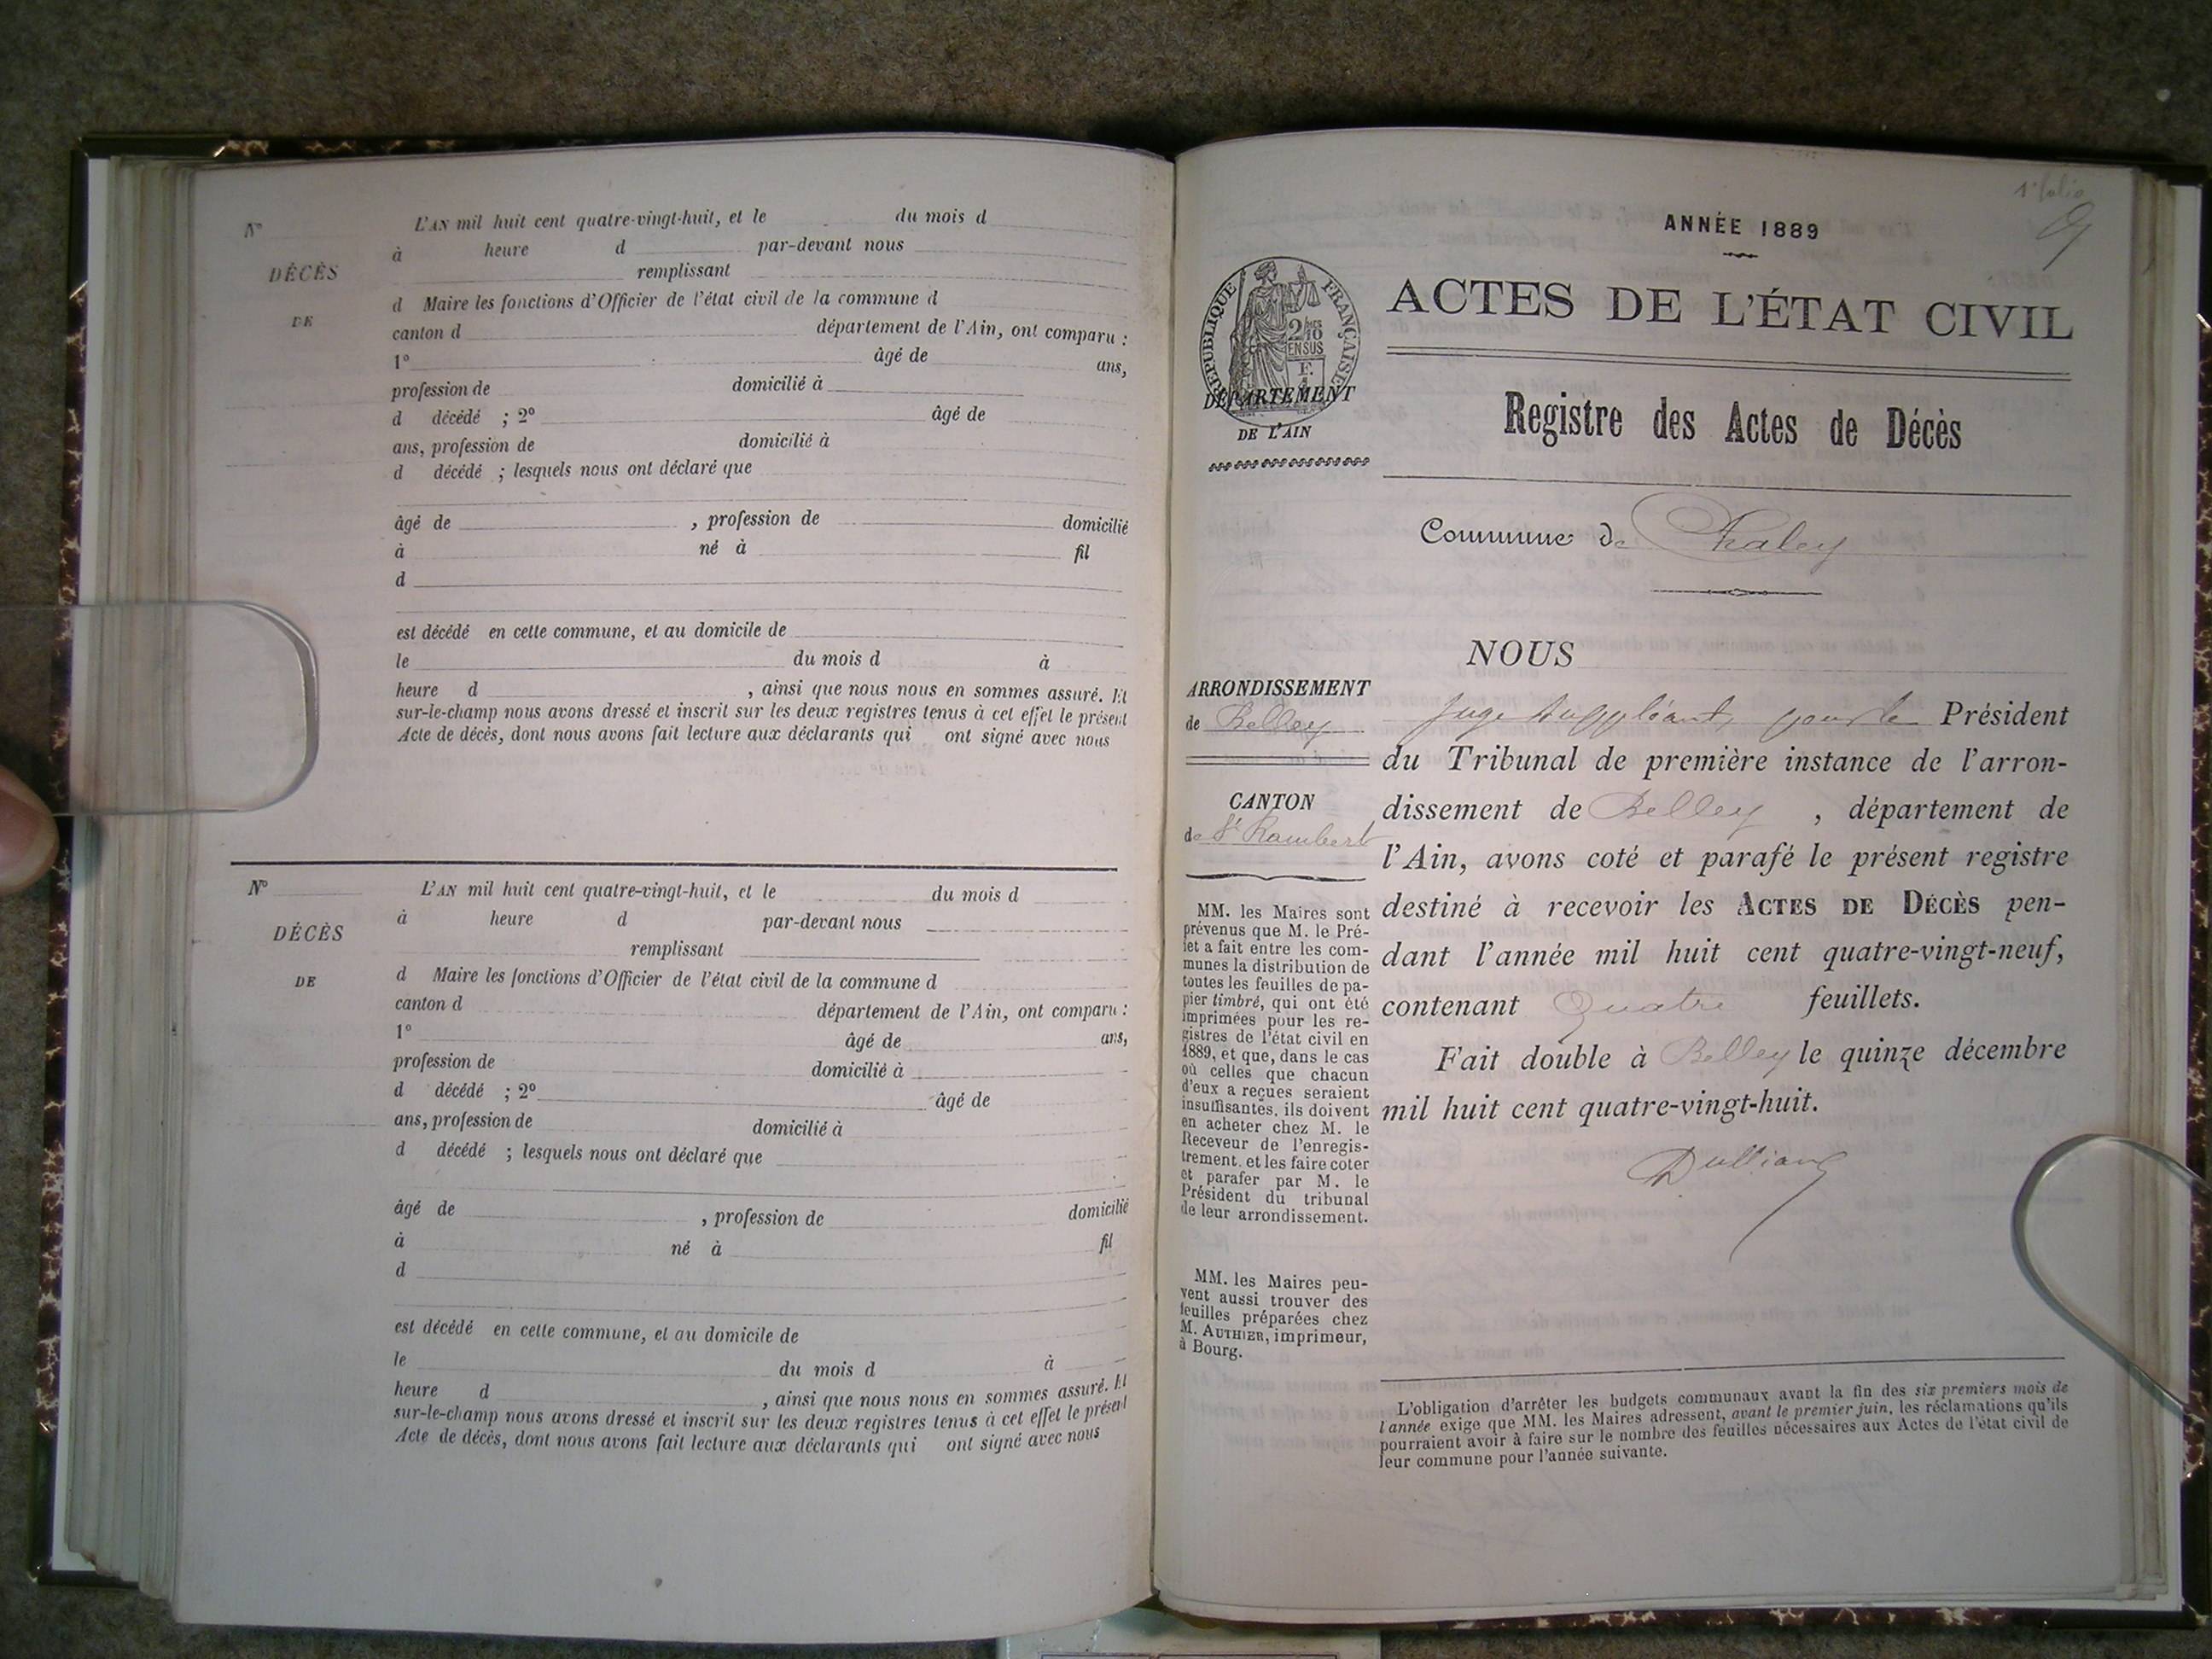 N°
DÉCÈS
DE
L'AN mil huit cent quatre-vingt-huit, et le du mois d
à heure d par-devant nous
remplissant
d Maire les fonctions d'Officier de l'état civil de la commune d
canton d département de l'Ain, ont comparu :
1° âgé de ans,
profession de domicilié à
d décédé ; 2° âgé de
ans, profession de domicilié à
d décédé ; lesquels nous ont déclaré que
âgé de , profession de domicilié
à né à fil
d
est décédé en cette commune, et au domicile de
le du mois d à
heure d , ainsi que nous nous en sommes assuré. Et
sur-le-champ nous avons dressé et inscrit sur les deux registres tenus à cet effet le présent
Acte de décès, dont nous avons fait lecture aux déclarants qui ont signé avec nous
N°
DÉCÈS
DE
L'AN mil huit cent quatre-vingt-huit, et le du mois d
à heure d par-devant nous
remplissant
d Maire les fonctions d'Officier de l'état civil de la commune d
canton d département de l'Ain, ont comparu :
1° âgé de ans,
profession de domicilié à
d décédé ; 2° âgé de
ans, profession de domicilié à
d décédé ; lesquels nous ont déclaré que
âgé de , profession de domicilié
à né à fil
d
est décédé en cette commune, et au domicile de
le du mois d à
heure d , ainsi que nous nous en sommes assuré. Et
sur-le-champ nous avons dressé et inscrit sur les deux registres tenus à cet effet le présent
Acte de décès, dont nous avons fait lecture aux déclarants qui ont signé avec nous
1er folio
ANNÉE 1889
RÉPUBLIQUE FRANÇAISE
2/10
EN SUS
DÉPARTEMENT
DE L'AIN
ACTES DE L'ÉTAT CIVIL
Registre des Actes de Décès
Commune de Chaley
ARRONDISSEMENT
de Belley
CANTON
de St Rambert
MM. les Maires sont
prévenus que M. le Pré-
fet a fait entre les com-
munes la distribution de
toutes les feuilles de pa-
pier timbré, qui ont été
imprimées pour les re-
gistres de l'état civil en
1889, et que, dans le cas
où celles que chacun
d'eux a reçues seraient
insuffisantes, ils doivent
en acheter chez M. le
Receveur de l'enregis-
trement, et les faire coter
et parafer par M. le
Président du tribunal
de leur arrondissement.
MM. les Maires peu-
vent aussi trouver des
feuilles préparées chez
M. AUTHIER, imprimeur,
à Bourg.
NOUS
Juge suppléant, pour le Président
du Tribunal de première instance de l'arron-
dissement de Belley , département de
l'Ain, avons coté et parafé le présent registre
destiné à recevoir les ACTES DE DÉCÈS pen-
dant l'année mil huit cent quatre-vingt-neuf,
contenant Quatre feuillets.
Fait double à Belley le quinze décembre
mil huit cent quatre-vingt-huit.
L'obligation d'arrêter les budgets communaux avant la fin des six premiers mois de
l'année exige que MM. les Maires adressent, avant le premier juin, les réclamations qu'ils
pourraient avoir à faire sur le nombre des feuilles nécessaires aux Actes de l'état civil de
leur commune pour l'année suivante.